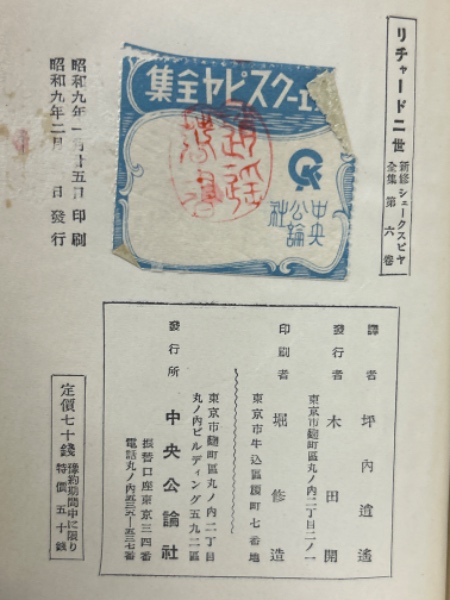 リチャード二世
新修シェークスピヤ
全集 第六卷
ェークスピヤ全集
中央
公論
社
昭和九年一月廿五日印刷
昭和九年二月 日發行
譯者 坪內逍遙
發行者 木田開
東京市麴町區丸ノ內二丁目二ノ一
印刷者 堀修造
東京市牛込區榎町七番地
發行所 中央公論社
東京市麴町區丸ノ內二丁目
丸ノ內ビルディング五九二區
振替口座東京三四番
電話丸ノ內
定價七十錢
豫約期間中に限り
特價五十錢